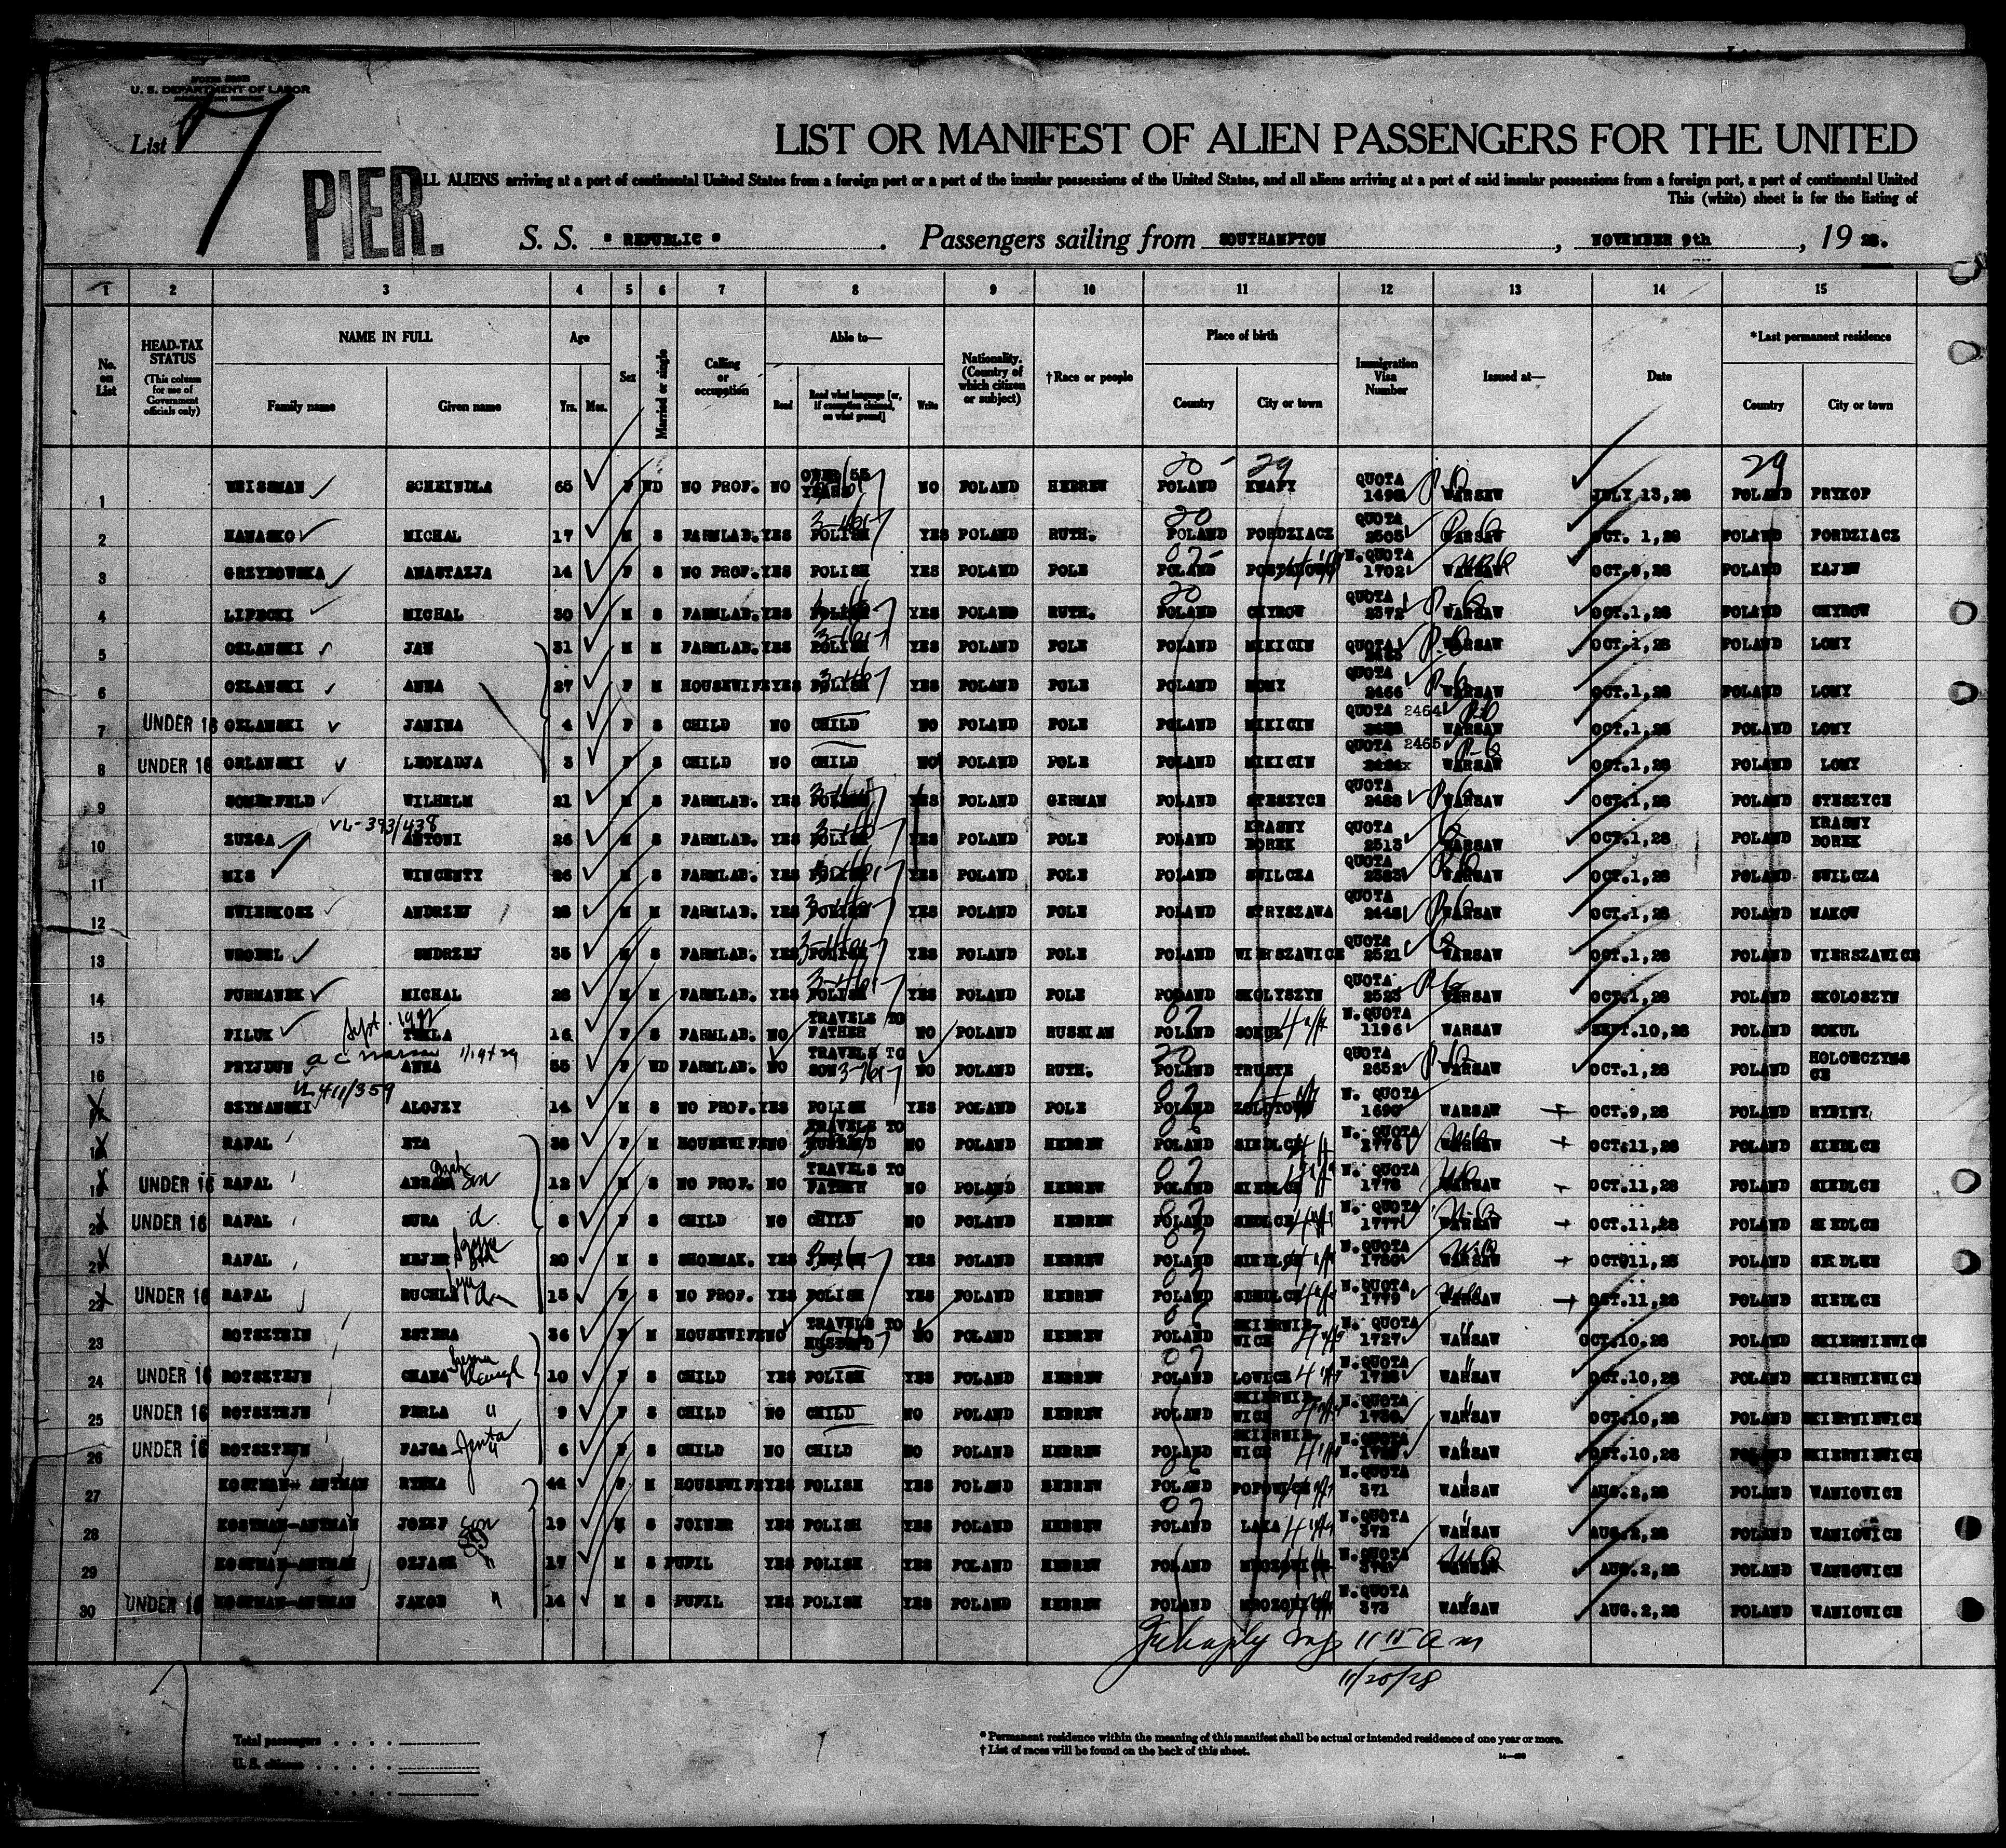 U. S. DEPARTMENT OF LABOR
List 7
LIST OR MANIFEST OF ALIEN PASSENGERS FOR THE UNITED
PIER.
LL ALIENS arriving at a port of continental United States from a foreign port or a port of the insular possessions of the United States, and all aliens arriving at a port of said insular possessions from a foreign port, a port of continental United
This (white) sheet is for the listing of
S. S. "REPUBLIC". Passengers sailing from SOUTHAMPTON, NOVEMBER 9th, 19 28.
1 2 3 4 5 6 7 8 9 10 11 12 13 14 15
No. on List
HEAD-TAX STATUS (This column for use of Government officials only)
NAME IN FULL Family name Given name
Age Yrs. Mos.
Sex
Married or single
Calling or occupation
Able to— Read Read what language [or, if exemption claimed, on what ground] Write
Nationality. (Country of which citizen or subject)
†Race or people
Place of birth Country City or town
Immigration Visa Number
Issued at—
Date
*Last permanent residence Country City or town
20 - 29 29
1 WEISSMAN SCHEINDLA 65 F WD NO PROF. NO OVER 55 YEARS NO POLAND HEBREW POLAND KNAPY QUOTA WARSAW JULY 13,28 POLAND PRYKOP
2 HANASKO MICHAL 17 M S FARMLAB. YES POLISH YES POLAND RUTH. POLAND PORDZIACZ QUOTA 2505 WARSAW OCT. 1,28 POLAND PORDZIACZ
3 GRZYBOWSKA ANASTAZJA 14 F S NO PROF. YES POLISH YES POLAND POLE POLAND N. QUOTA 1702 WARSAW OCT.9,28 POLAND KAJEW
4 LIPECKI MICHAL 30 M S FARMLAB. YES POLISH YES POLAND RUTH. POLAND CHYROW QUOTA 2372 WARSAW OCT.1,28 POLAND CHYROW
5 OZLANSKI JAN 31 M M FARMLAB. YES POLISH YES POLAND POLE POLAND MIKICIN QUOTA WARSAW OCT.1,28 POLAND LOMY
6 OZLANSKI ANNA 27 F M HOUSEWIFE YES POLISH YES POLAND POLE POLAND QUOTA 2466 WARSAW OCT.1,28 POLAND LOMY
7 UNDER 16 OZLANSKI JANINA 4 F S CHILD NO CHILD NO POLAND POLE POLAND MIKICIN QUOTA 2464 WARSAW OCT.1,28 POLAND LOMY
8 UNDER 16 OZLANSKI LEOKADJA 3 F S CHILD NO CHILD NO POLAND POLE POLAND MIKICIN QUOTA 2465 WARSAW OCT.1,28 POLAND LOMY
9 SOMERFELD WILHELM 21 M S FARMLAB. YES POLISH YES POLAND GERMAN POLAND STESZYCE QUOTA WARSAW OCT.1,28 POLAND STESZYCE
VL-393/438
10 ZUZGA ANTONI 26 M S FARMLAB. YES POLISH YES POLAND POLE POLAND KRASNY BOREK QUOTA 2513 WARSAW OCT.1,28 POLAND KRASNY BOREK
11 MIS WINCENTY 26 M S FARMLAB. YES POLISH YES POLAND POLE POLAND SWILCZA QUOTA WARSAW OCT.1,28 POLAND SWILCZA
12 SWIERKOSZ ANDRZEJ 28 M M FARMLAB. YES POLISH YES POLAND POLE POLAND STRYSZAWA QUOTA 2448 WARSAW OCT.1,28 POLAND MAKOW
13 WROBEL ENDRZEJ 35 M S FARMLAB. YES POLISH YES POLAND POLE POLAND WIERSZAWICE QUOTA 2521 WARSAW OCT.1,28 POLAND WIERSZAWICE
14 FURMANEK MICHAL 28 M M FARMLAB. YES POLISH YES POLAND POLE POLAND SKOLYSZYN QUOTA 2523 WARSAW OCT.1,28 POLAND SKOLOSZYN
15 PILUK TEKLA 16 F S FARMLAB. NO TRAVELS TO FATHER NO POLAND RUSSIAN POLAND SOKUL N. QUOTA 1196 WARSAW SEPT.10,28 POLAND SOKUL
16 PRYJDUN ANNA 55 F WD FARMLAB. NO TRAVELS TO SON NO POLAND RUTH. POLAND TRUSTE QUOTA 2652 WARSAW OCT.1,28 POLAND HOLOWCZYNS CE
VL 411/359
17 SZYMANSKI ALOJZY 14 M S NO PROF. YES POLISH YES POLAND POLE POLAND N. QUOTA 1690 WARSAW OCT.9,28 POLAND RYBINY
18 RAFAL ETA 38 F M HOUSEWIFE NO TRAVELS TO HUSBAND NO POLAND HEBREW POLAND SIEDLCE N. QUOTA 1776 WARSAW OCT.11,28 POLAND SIEDLCE
19 UNDER 16 RAFAL ABRAM son 12 M S NO PROF. NO TRAVELS TO FATHER NO POLAND HEBREW POLAND SIEDLCE N. QUOTA 1778 WARSAW OCT.11,28 POLAND SIEDLCE
20 UNDER 16 RAFAL SURA d. 8 F S CHILD NO CHILD NO POLAND HEBREW POLAND SIEDLCE N. QUOTA 1777 WARSAW OCT.11,28 POLAND SIEDLCE
21 RAFAL MEJER 20 M S SHOEMAK. YES YES POLAND HEBREW POLAND SIEDLCE N. QUOTA 1780 WARSAW OCT.11,28 POLAND SIEDLCE
22 UNDER 16 RAFAL RUCHLA 15 F S NO PROF. YES POLISH YES POLAND HEBREW POLAND SIEDLCE N. QUOTA 1779 WARSAW OCT.11,28 POLAND SIEDLCE
23 ROTSZTEIN ESTERA 36 F M HOUSEWIFE NO TRAVELS TO HUSBAND NO POLAND HEBREW POLAND SKIERNIE WICE N. QUOTA 1727 WARSAW OCT.10,28 POLAND SKIERNIEWICE
24 UNDER 16 ROTSZTEJN CHANA 10 F S CHILD YES POLISH YES POLAND HEBREW POLAND LOWICZ N. QUOTA 1728 WARSAW OCT.10,28 POLAND SKIERNIEWICE
25 UNDER 16 ROTSZTEJN PERLA " 9 F S CHILD NO CHILD NO POLAND HEBREW POLAND SKIERNIE WICE N. QUOTA WARSAW OCT.10,28 POLAND SKIERNIEWICE
26 UNDER 16 ROTSZTEJN FAJGA 6 F S CHILD NO CHILD NO POLAND HEBREW POLAND SKIERNIE WICE N. QUOTA WARSAW OCT.10,28 POLAND SKIERNIEWICE
27 KOSTMAN-ANTMAN RYWKA 44 F M HOUSEWIFE YES POLISH YES POLAND HEBREW POLAND POPOWICE N. QUOTA 371 WARSAW AUG.2,28 POLAND WANIOWICE
28 KOSTMAN-ANTMAN JOZEF son 19 M S JOINER YES POLISH YES POLAND HEBREW POLAND LAKA N. QUOTA 372 WARSAW AUG.2,28 POLAND WANIOWICE
29 KOSTMAN-ANTMAN OZJASZ " 17 M S PUPIL YES POLISH YES POLAND HEBREW POLAND N. QUOTA WARSAW AUG.2,28 POLAND WANIOWICE
30 UNDER 16 KOSTMAN-ANTMAN JAKOB " 14 M S PUPIL YES POLISH YES POLAND HEBREW POLAND N. QUOTA 373 WARSAW AUG.2,28 POLAND WANIOWICE
11 15 a m
11/20/28
Total passengers
U. S. citizens
* Permanent residence within the meaning of this manifest shall be actual or intended residence of one year or more.
† List of races will be found on the back of this sheet.